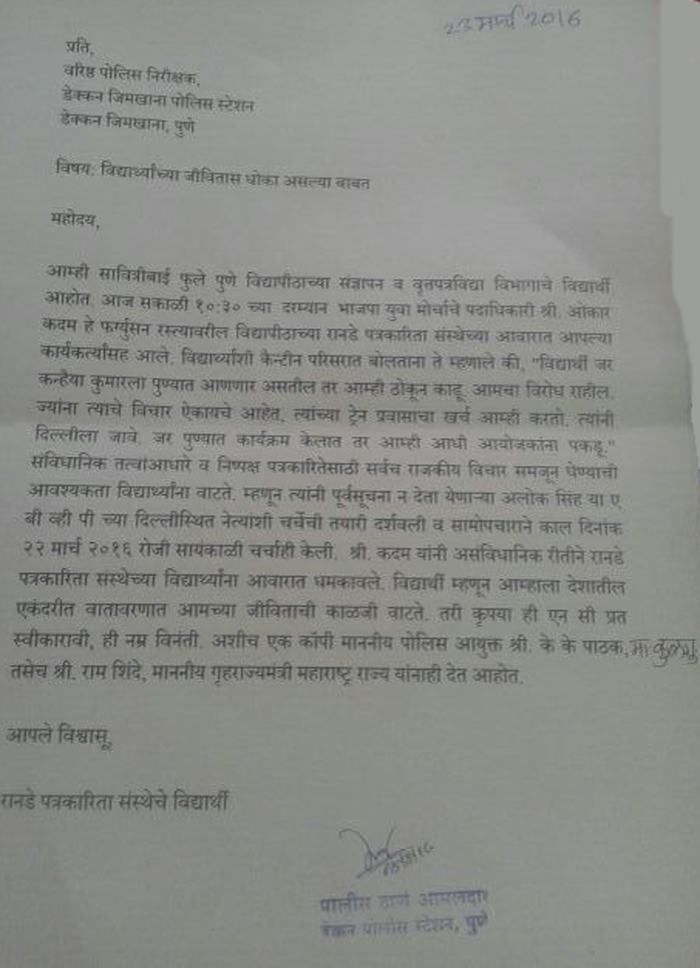 23 मार्च 2016
प्रति,
वरिष्ठ पोलिस निरीक्षक,
डेक्कन जिमखाना पोलिस स्टेशन
डेक्कन जिमखाना, पुणे
विषय: विद्यार्थ्यांच्या जीवितास धोका असल्या बाबत
महोदय,
आम्ही सावित्रीबाई फुले पुणे विद्यापीठाच्या संज्ञापन व वृत्तपत्रविद्या विभागाचे विद्यार्थी
आहोत. आज सकाळी १०:३० च्या दरम्यान भाजपा युवा मोर्चाचे पदाधिकारी श्री. ओंकार
कदम हे फर्ग्युसन रस्त्यावरील विद्यापीठाच्या रानडे पत्रकारिता संस्थेच्या आवारात आपल्या
कार्यकर्त्यांसह आले. विद्यार्थ्यांशी कैन्टीन परिसरात बोलताना ते म्हणाले की, "विद्यार्थी जर
कन्हैया कुमारला पुण्यात आणणार असतील तर आम्ही ठोकून काढू. आमचा विरोध राहील.
ज्यांना त्याचे विचार ऐकायचे आहेत, त्यांच्या ट्रेन प्रवासाचा खर्च आम्ही करतो. त्यांनी
दिल्लीला जावे. जर पुण्यात कार्यक्रम केलात तर आम्ही आधी आयोजकांना पकडू."
संविधानिक तत्वांआधारे व निष्पक्ष पत्रकारितेसाठी सर्वच राजकीय विचार समजून घेण्याची
आवश्यकता विद्यार्थ्यांना वाटते. म्हणून त्यांनी पूर्वसूचना न देता येणाऱ्या अलोक सिंह या ए
बी व्ही पी च्या दिल्लीस्थित नेत्याशी चर्चेची तयारी दर्शवली व सामोपचाराने काल दिनांक
२२ मार्च २०१६ रोजी सायंकाळी चर्चाही केली. श्री. कदम यांनी असंविधानिक रीतीने रानडे
पत्रकारिता संस्थेच्या विद्यार्थ्यांना आवारात धमकावले. विद्यार्थी म्हणून आम्हाला देशातील
एकंदरीत वातावरणात आमच्या जीविताची काळजी वाटते. तरी कृपया ही एन सी प्रत
स्वीकारावी, ही नम्र विनंती. अशीच एक कॉपी माननीय पोलिस आयुक्त श्री. के के पाठक,
तसेच श्री. राम शिंदे, माननीय गृहराज्यमंत्री महाराष्ट्र राज्य यांनाही देत आहोत.
आपले विश्वासू,
रानडे पत्रकारिता संस्थेचे विद्यार्थी
पोलीस ठाणे अंमलदार
डेक्कन पोलीस स्टेशन, पुणे